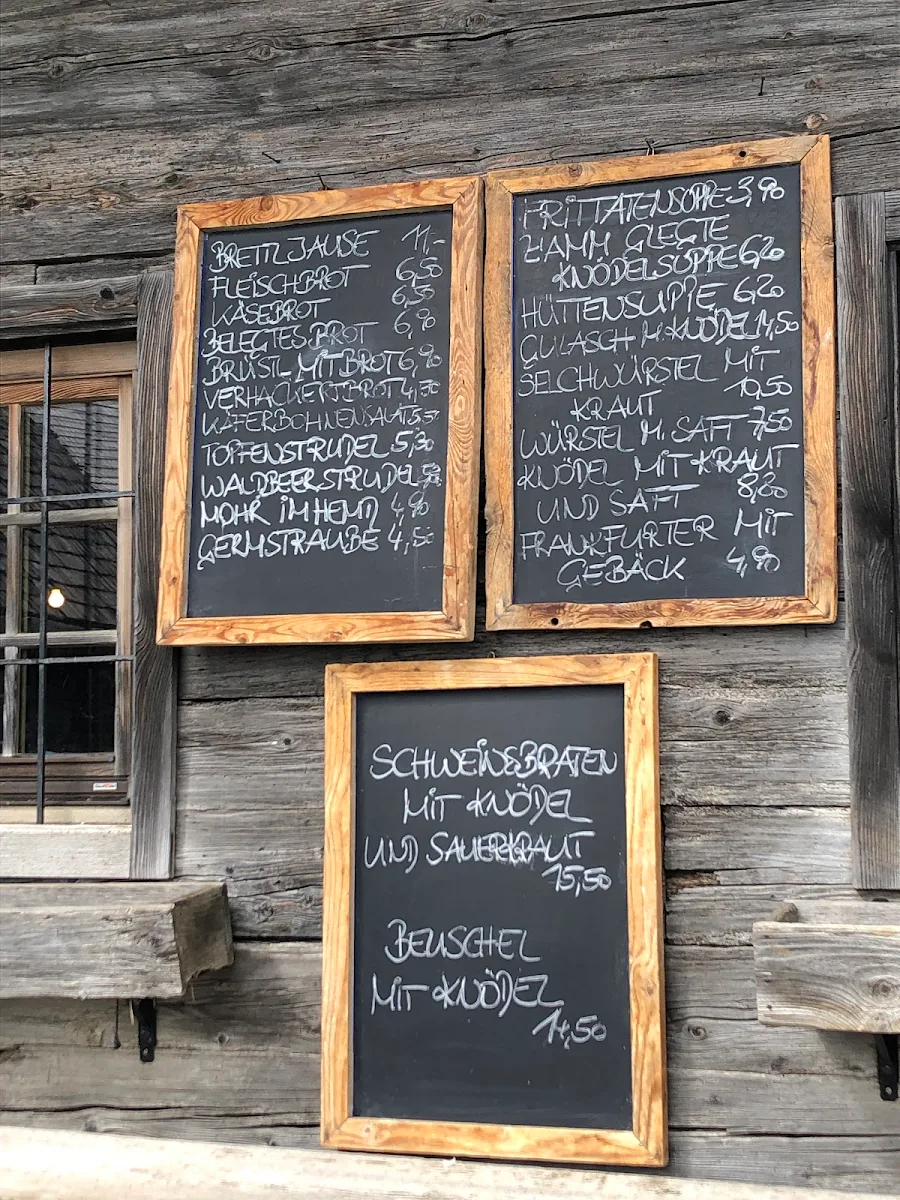 BRETTLJAUSE 11,-
FLEISCHBROT 6,50
KÄSEBROT 6,50
BELEGTES BROT 6,90
BRÜSTL MIT BROT 6,90
VERHACKERTBROT 4,70
KÄFERBOHNENSALAT 5,50
TOPFENSTRUDEL 5,30
WALDBEERSTRUDEL
MOHR IM HEMD 4,90
GERMSTRAUBE 4,50
FRITTATENSUPPE 3,90
ZAMM GLEGTE
KNÖDELSUPPE 6,20
HÜTTENSUPPE 6,20
GULASCH M. KNÖDEL 14,50
SELCHWÜRSTEL MIT
KRAUT 10,50
WÜRSTEL M. SAFT 7,50
KNÖDEL MIT KRAUT
UND SAFT 8,20
FRANKFURTER MIT
GEBÄCK 4,90
SCHWEINSBRATEN
MIT KNÖDEL
UND SAUERKRAUT
15,50
BEUSCHEL
MIT KNÖDEL
14,50